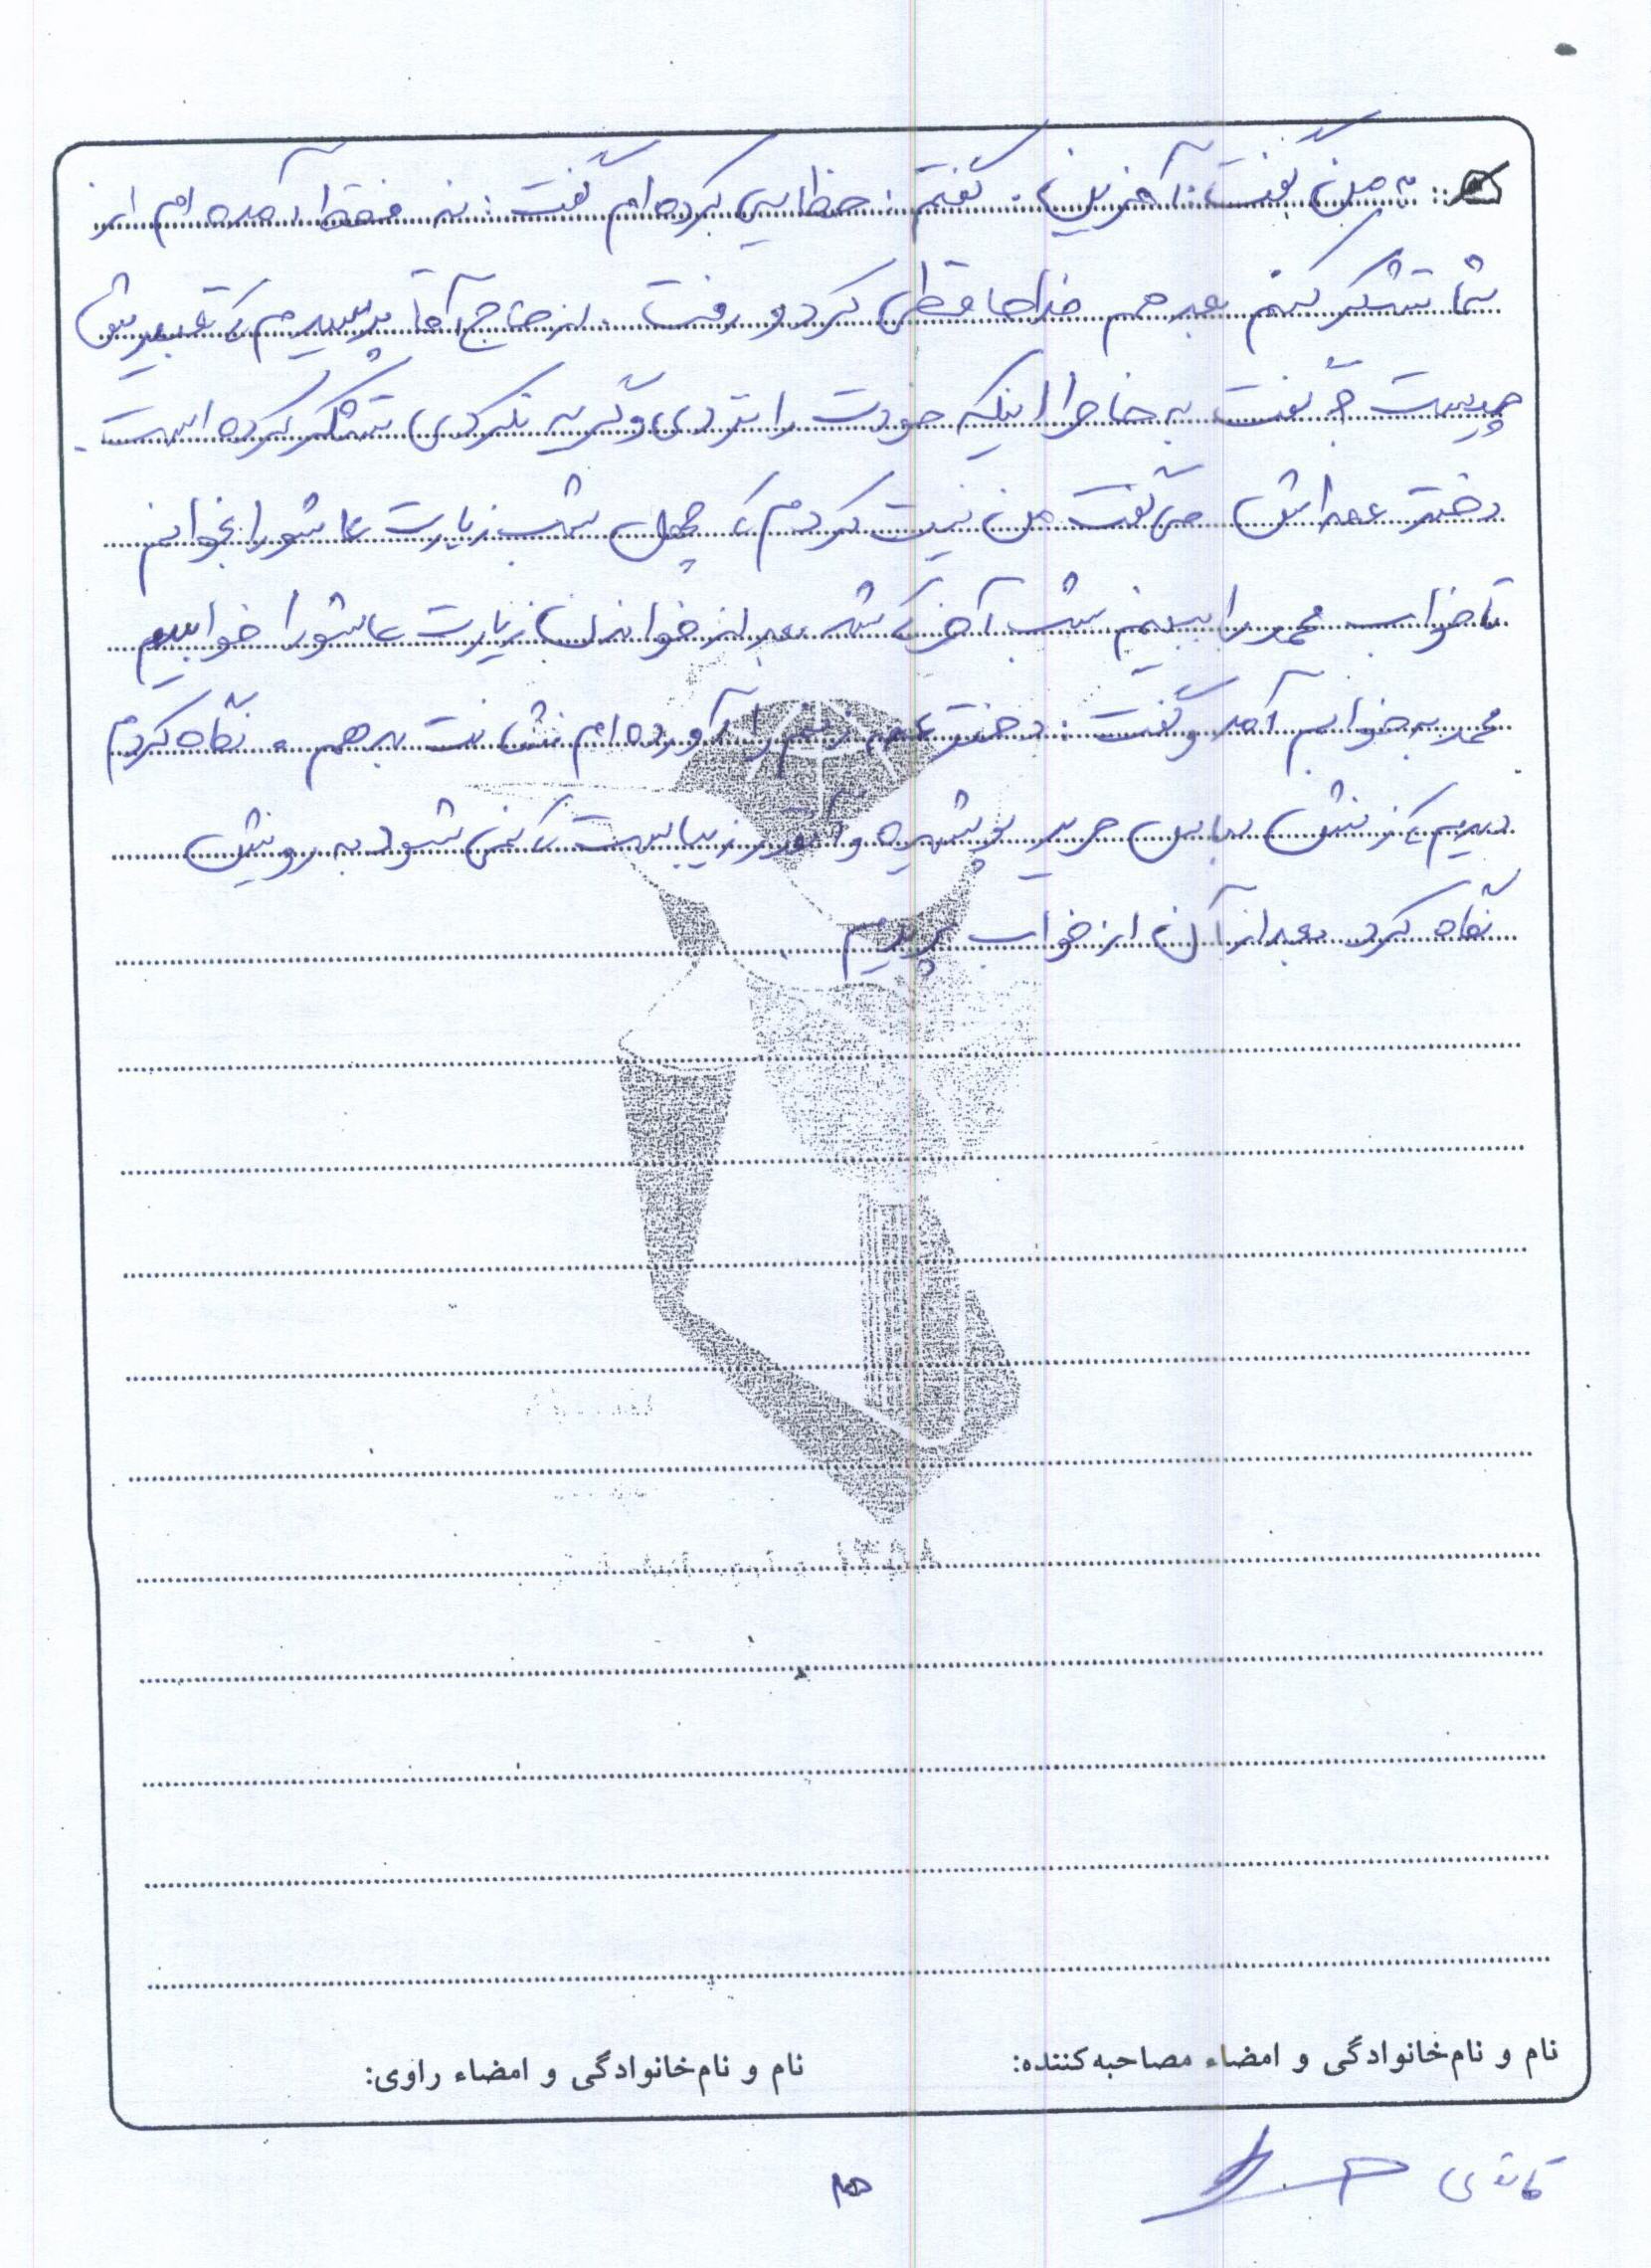 به من گفت: آفرین. گفتم: خطایی کرده‌ام گفت: نه فقط آمده‌ام از
شما تشکر کنم بعد هم خداحافظی کرد و رفت. از حاج آقا پرسیدم که تعبیرش
چیست؟ گفت به خاطر اینکه خودت را نزدی و گریه نکردی تشکر کرده است.
دختر عمه‌اش می‌گفت من نیت کردم که چهل شب زیارت عاشورا بخوانم
تا خواب محمد را ببینم شب آخر که شد بعد از خواندن زیارت عاشورا خوابیدم
محمد به خوابم آمد و گفت: دختر عمه زنم را آورده‌ام نشانت بدهم. نگاه کردم
دیدم که زنش لباس حریر پوشیده و آنقدر زیباست که نمی‌شود به رویش
نگاه کرد. بعد از آن از خواب پریدم
نام و نام‌خانوادگی و امضاء مصاحبه‌کننده: نام و نام‌خانوادگی و امضاء راوی: